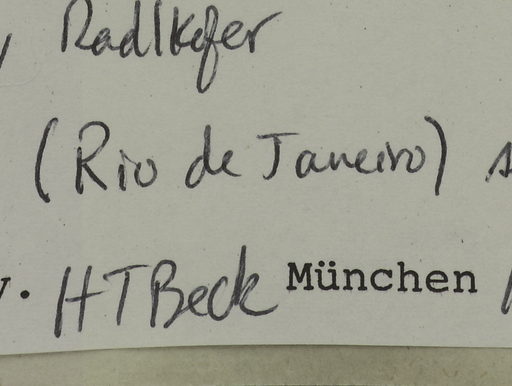 , Radlkofer
(Rio de Janeiro)
v. HTBeck München